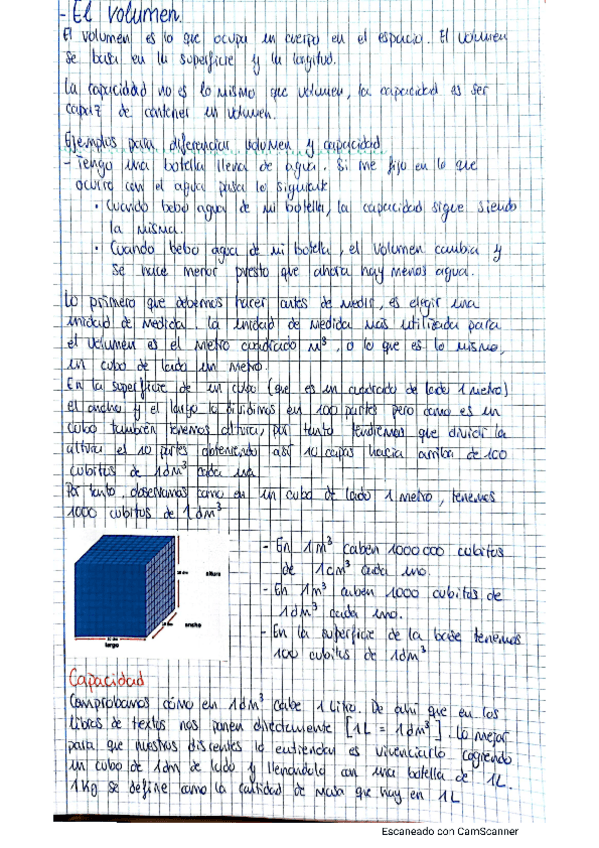 - El volumen.
El volumen es lo que ocupa un cuerpo en el espacio. El volumen
se basa en la superficie y la longitud.
La capacidad no es lo mismo que volumen, la capacidad es ser
capaz de contener un volumen.
Ejemplos para diferenciar volumen y capacidad
- Tengo una botella llena de agua. Si me fijo en lo que
ocurre con el agua pasa lo siguiente
• Cuando bebo agua de mi botella, la capacidad sigue siendo
la misma.
• Cuando bebo agua de mi botella, el volumen cambia y
se hace menor puesto que ahora hay menos agua.
Lo primero que debemos hacer antes de medir, es elegir una
unidad de medida. La unidad de medida más utilizada para
el volumen es el metro cuadrado m³, o lo que es lo mismo,
un cubo de lado un metro.
En la superficie de un cubo (que es un cuadrado de lado 1 metro)
el ancho y el largo lo dividimos en 100 partes pero como es un
cubo también tenemos altura, por tanto tendremos que dividir la
altura el 10 partes obteniendo así 10 capas hacia arriba de 100
cubitos de 1dm³ cada una
Por tanto, observamos como en un cubo de lado 1 metro, tenemos
1000 cubitos de 1dm³
10 dm altura
10 dm ancho
10 dm
largo
- En 1m³ caben 1000000 cubitos
de 1cm³ cada uno.
- En 1m³ caben 1000 cubitos de
1dm³ cada uno.
- En la superficie de la base tenemos
100 cubitos de 1dm³
Capacidad
Comprobamos cómo en 1dm³ cabe 1 litro. De ahí que en los
libros de textos nos ponen directamente [1L = 1dm³]. Lo mejor
para que nuestros discentes lo entiendan es vivenciarlo cogiendo
un cubo de 1dm de lado y llenándolo con una botella de 1L.
1Kg se define como la cantidad de masa que hay en 1L
Escaneado con CamScanner